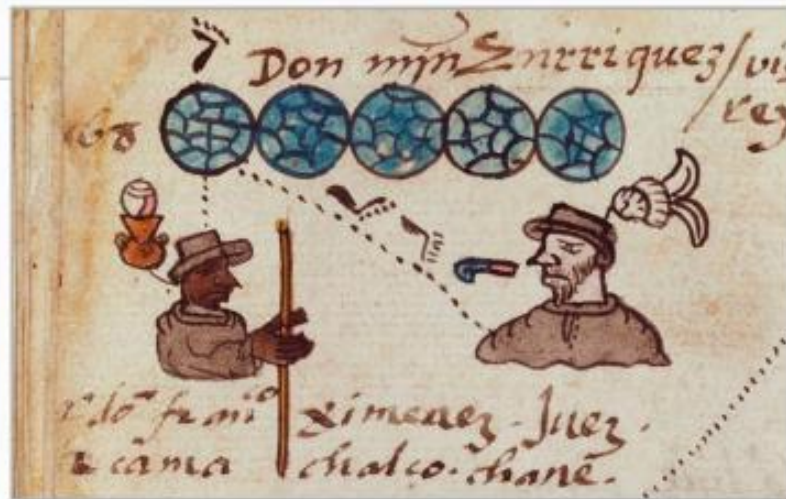 Don mỹn Enrriquez / vis
rey
68
don franco ximenez. Juez.
tecama chalco. chane.